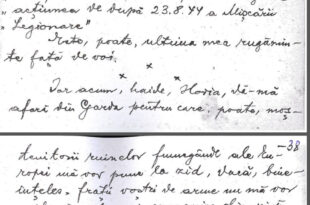 "acțiunea de după 23.8.44 a Mișcării
"Legionare"
Este, poate, ultima mea rugămin-
te față de voi.
x x x
Iar acum, haide, Horia, dă-mă
afară din Garda pentru care, poate, moș-
-38
tenitorii ruinelor fumegânde ale Eu-
ropei mă vor pune la zid, dacă, bine-
înțeles, frații voștri de arme nu mă vor